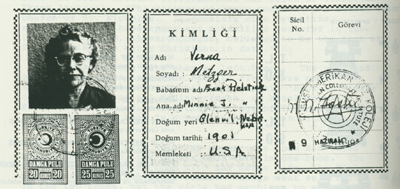 KİMLİĞİ
Adı Verna
Soyadı: Metzger
Babasının adı:
Ana adı: Minnie J.
Doğum yeri: Glenvil, Nebr.
Doğum tarihi: 1901
Memleketi: U.S.A.
Sicil No.
Görevi
AMERİKAN
9 HAZİRAN
DAMGA PULU
20 20
DAMGA PULU
25 25